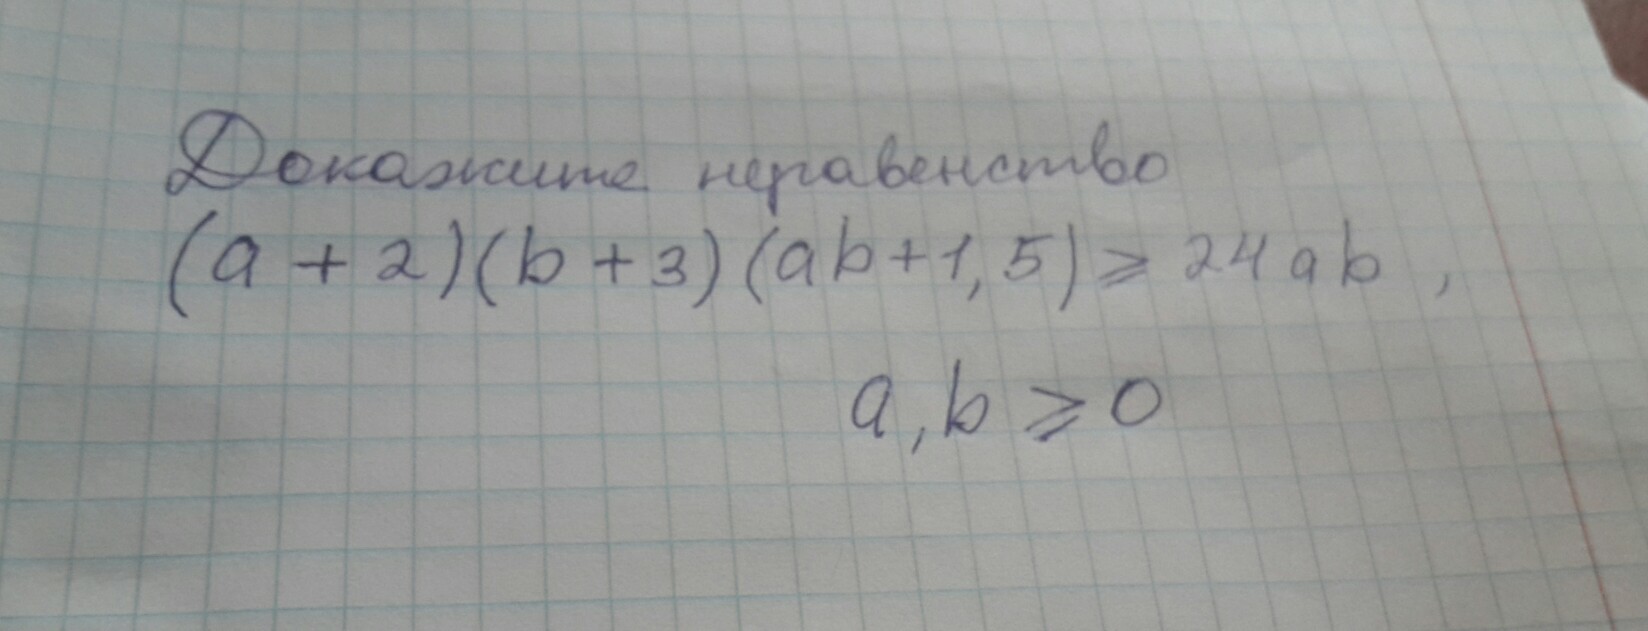 Докажите неравенство
(a + 2)(b + 3)(ab + 1,5) ⩾ 24 ab ,
a, b ⩾ 0